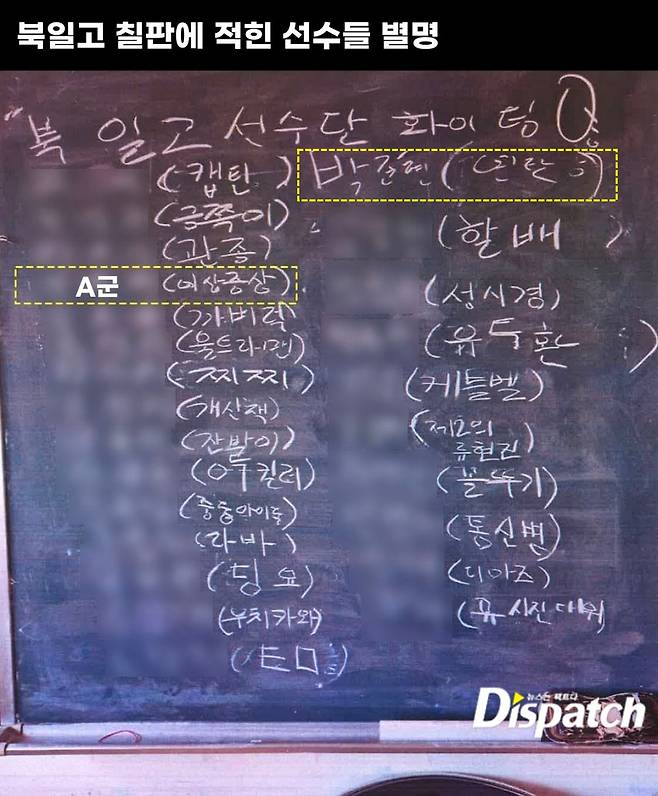 북일고 칠판에 적힌 선수들 별명
북일고 선수단 화이팅
(캡틴) 박준현
(금쪽이)
(관종) (할배)
A군 (이상증상) (성시경)
(까비럭
(울트라맨) (유두환
(찌찌) (케틀벨)
(개산책) (제2의
(잔발이) 류현진)
(여우킬러) (꼴뚜기)
(중중아이돌) (통신병)
(라바) (디아즈)
(딩요) (유시진대위)
(부치카와)
뉴스는 팩트다
Dispatch